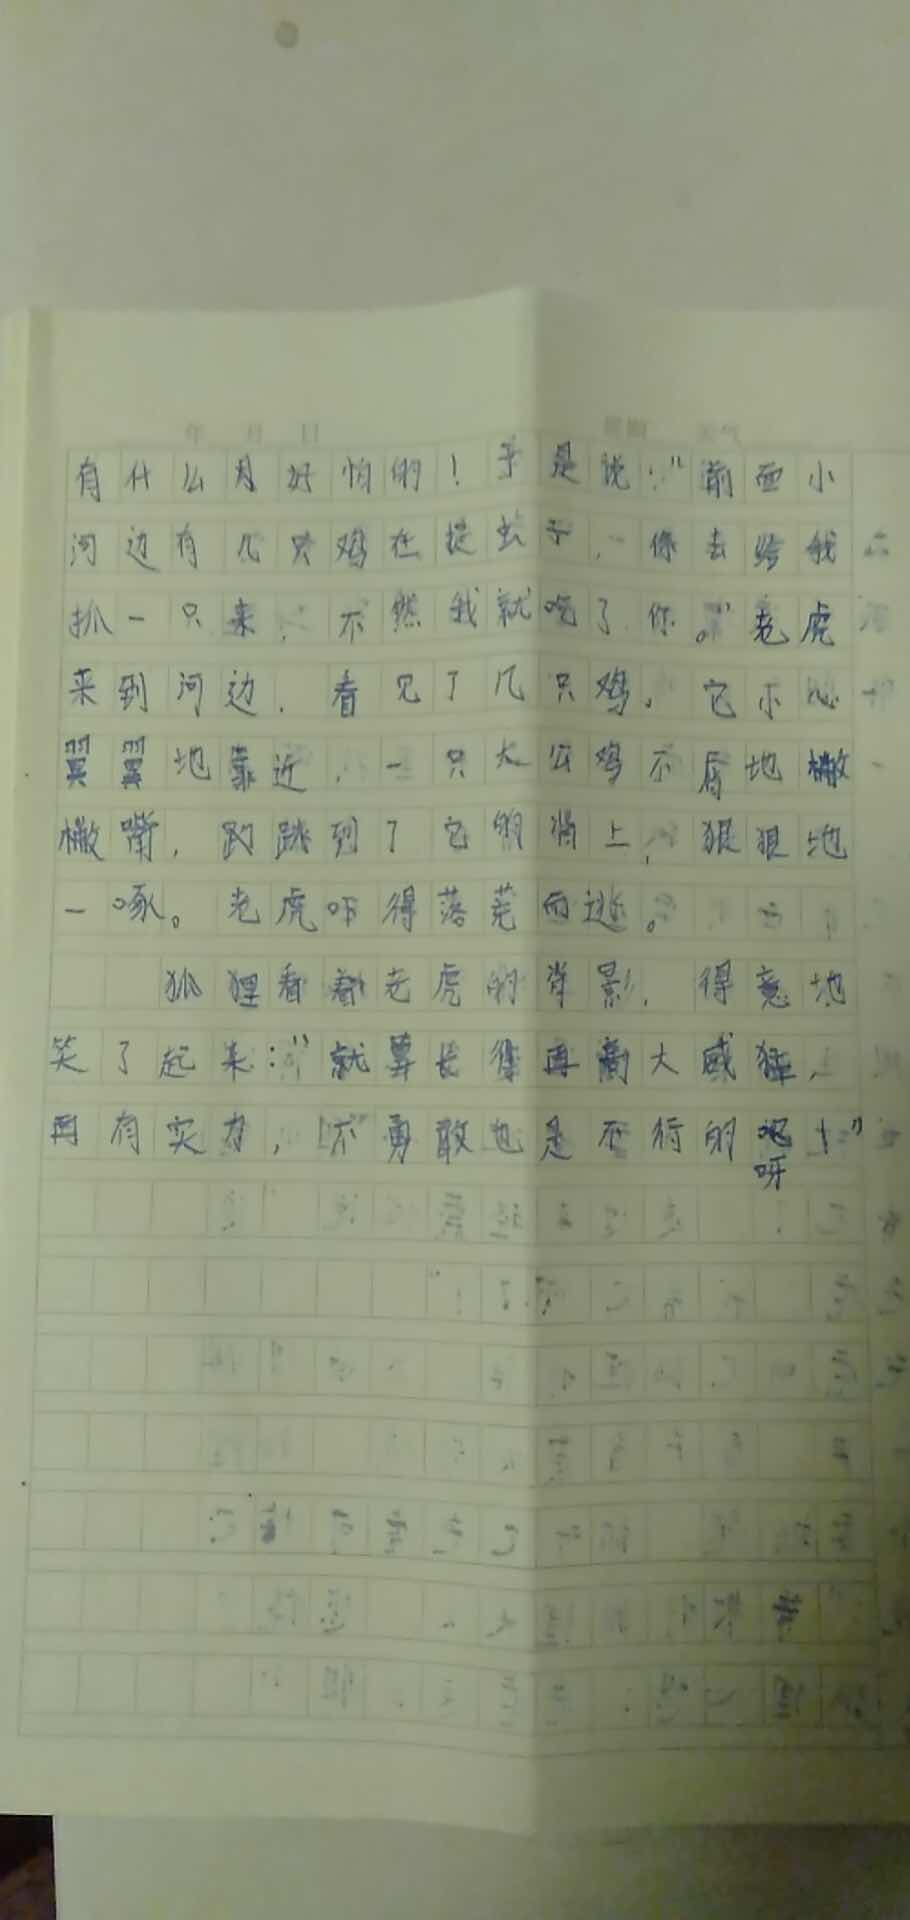 年 月 日 星期 天气
有什么好怕的！于是说：“前面小
河边有几只鸡在捉虫子，你去给我
抓一只来，不然我就吃了你。”老虎
来到河边，看见了几只鸡，它小心
翼翼地靠近，一只大公鸡不屑地撇
撇嘴，跳到了它的背上，狠狠地
一啄。老虎吓得落荒而逃。
狐狸看着老虎的背影，得意地
笑了起来：“就算长得再高大威猛，
再有实力，不勇敢也是不行的呀！”